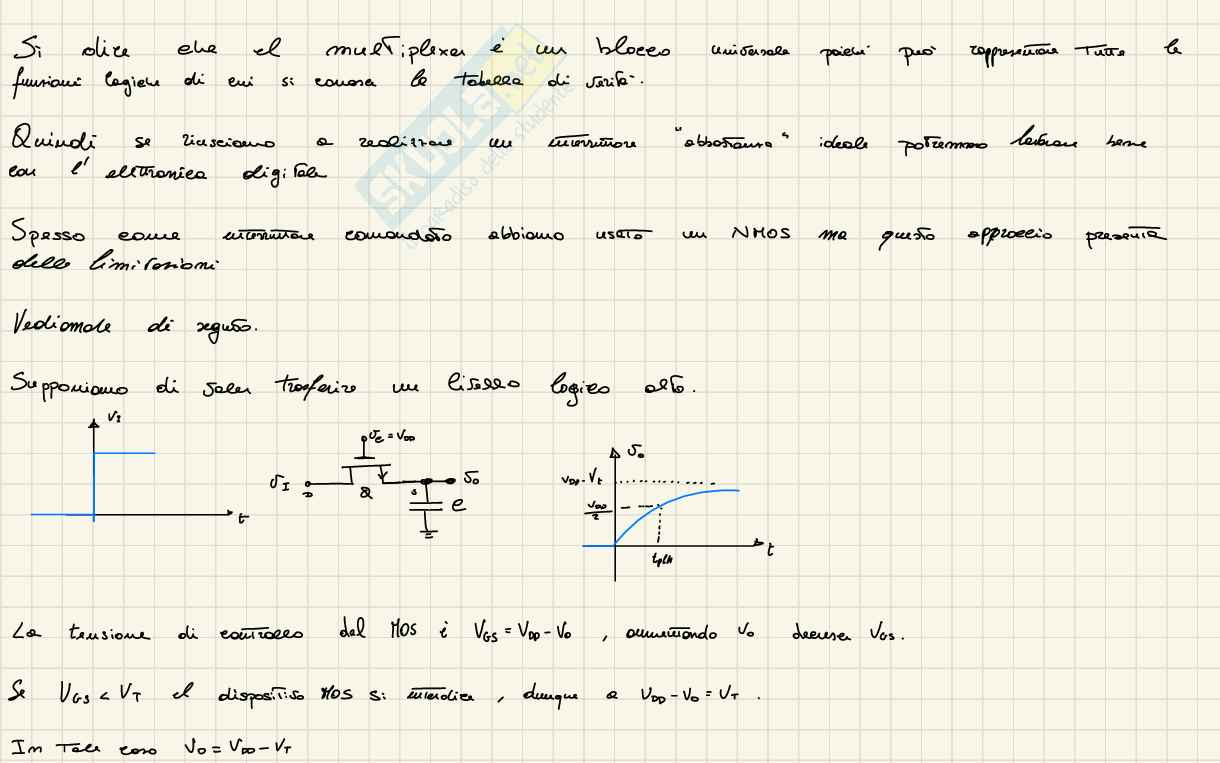 Si dice che il multiplexer è un blocco universale poiché può rappresentare tutte le
funzioni logiche di cui si conosce la tabella di verità.
Quindi se riusciamo a realizzare un interruttore "abbastanza" ideale potremmo lavorare bene
con l'elettronica digitale
Spesso come interruttore comandato abbiamo usato un NMOS ma questo approccio presenta
delle limitazioni
Vediamole di seguito.
Supponiamo di voler trasferire un livello logico alto.
VI
t
vI
D
vc = VDD
Q
S
vo
C
vo
VDD - Vt
VDD/2
tpLH
t
La tensione di controllo del MOS è VGS = VDD - VO , aumentando VO decresce VGS.
Se VGS < VT il dispositivo MOS si interdice , dunque a VDD - VO = VT .
In tale caso VO = VDD - VT
SKUOLA.net
il paradiso dello studente